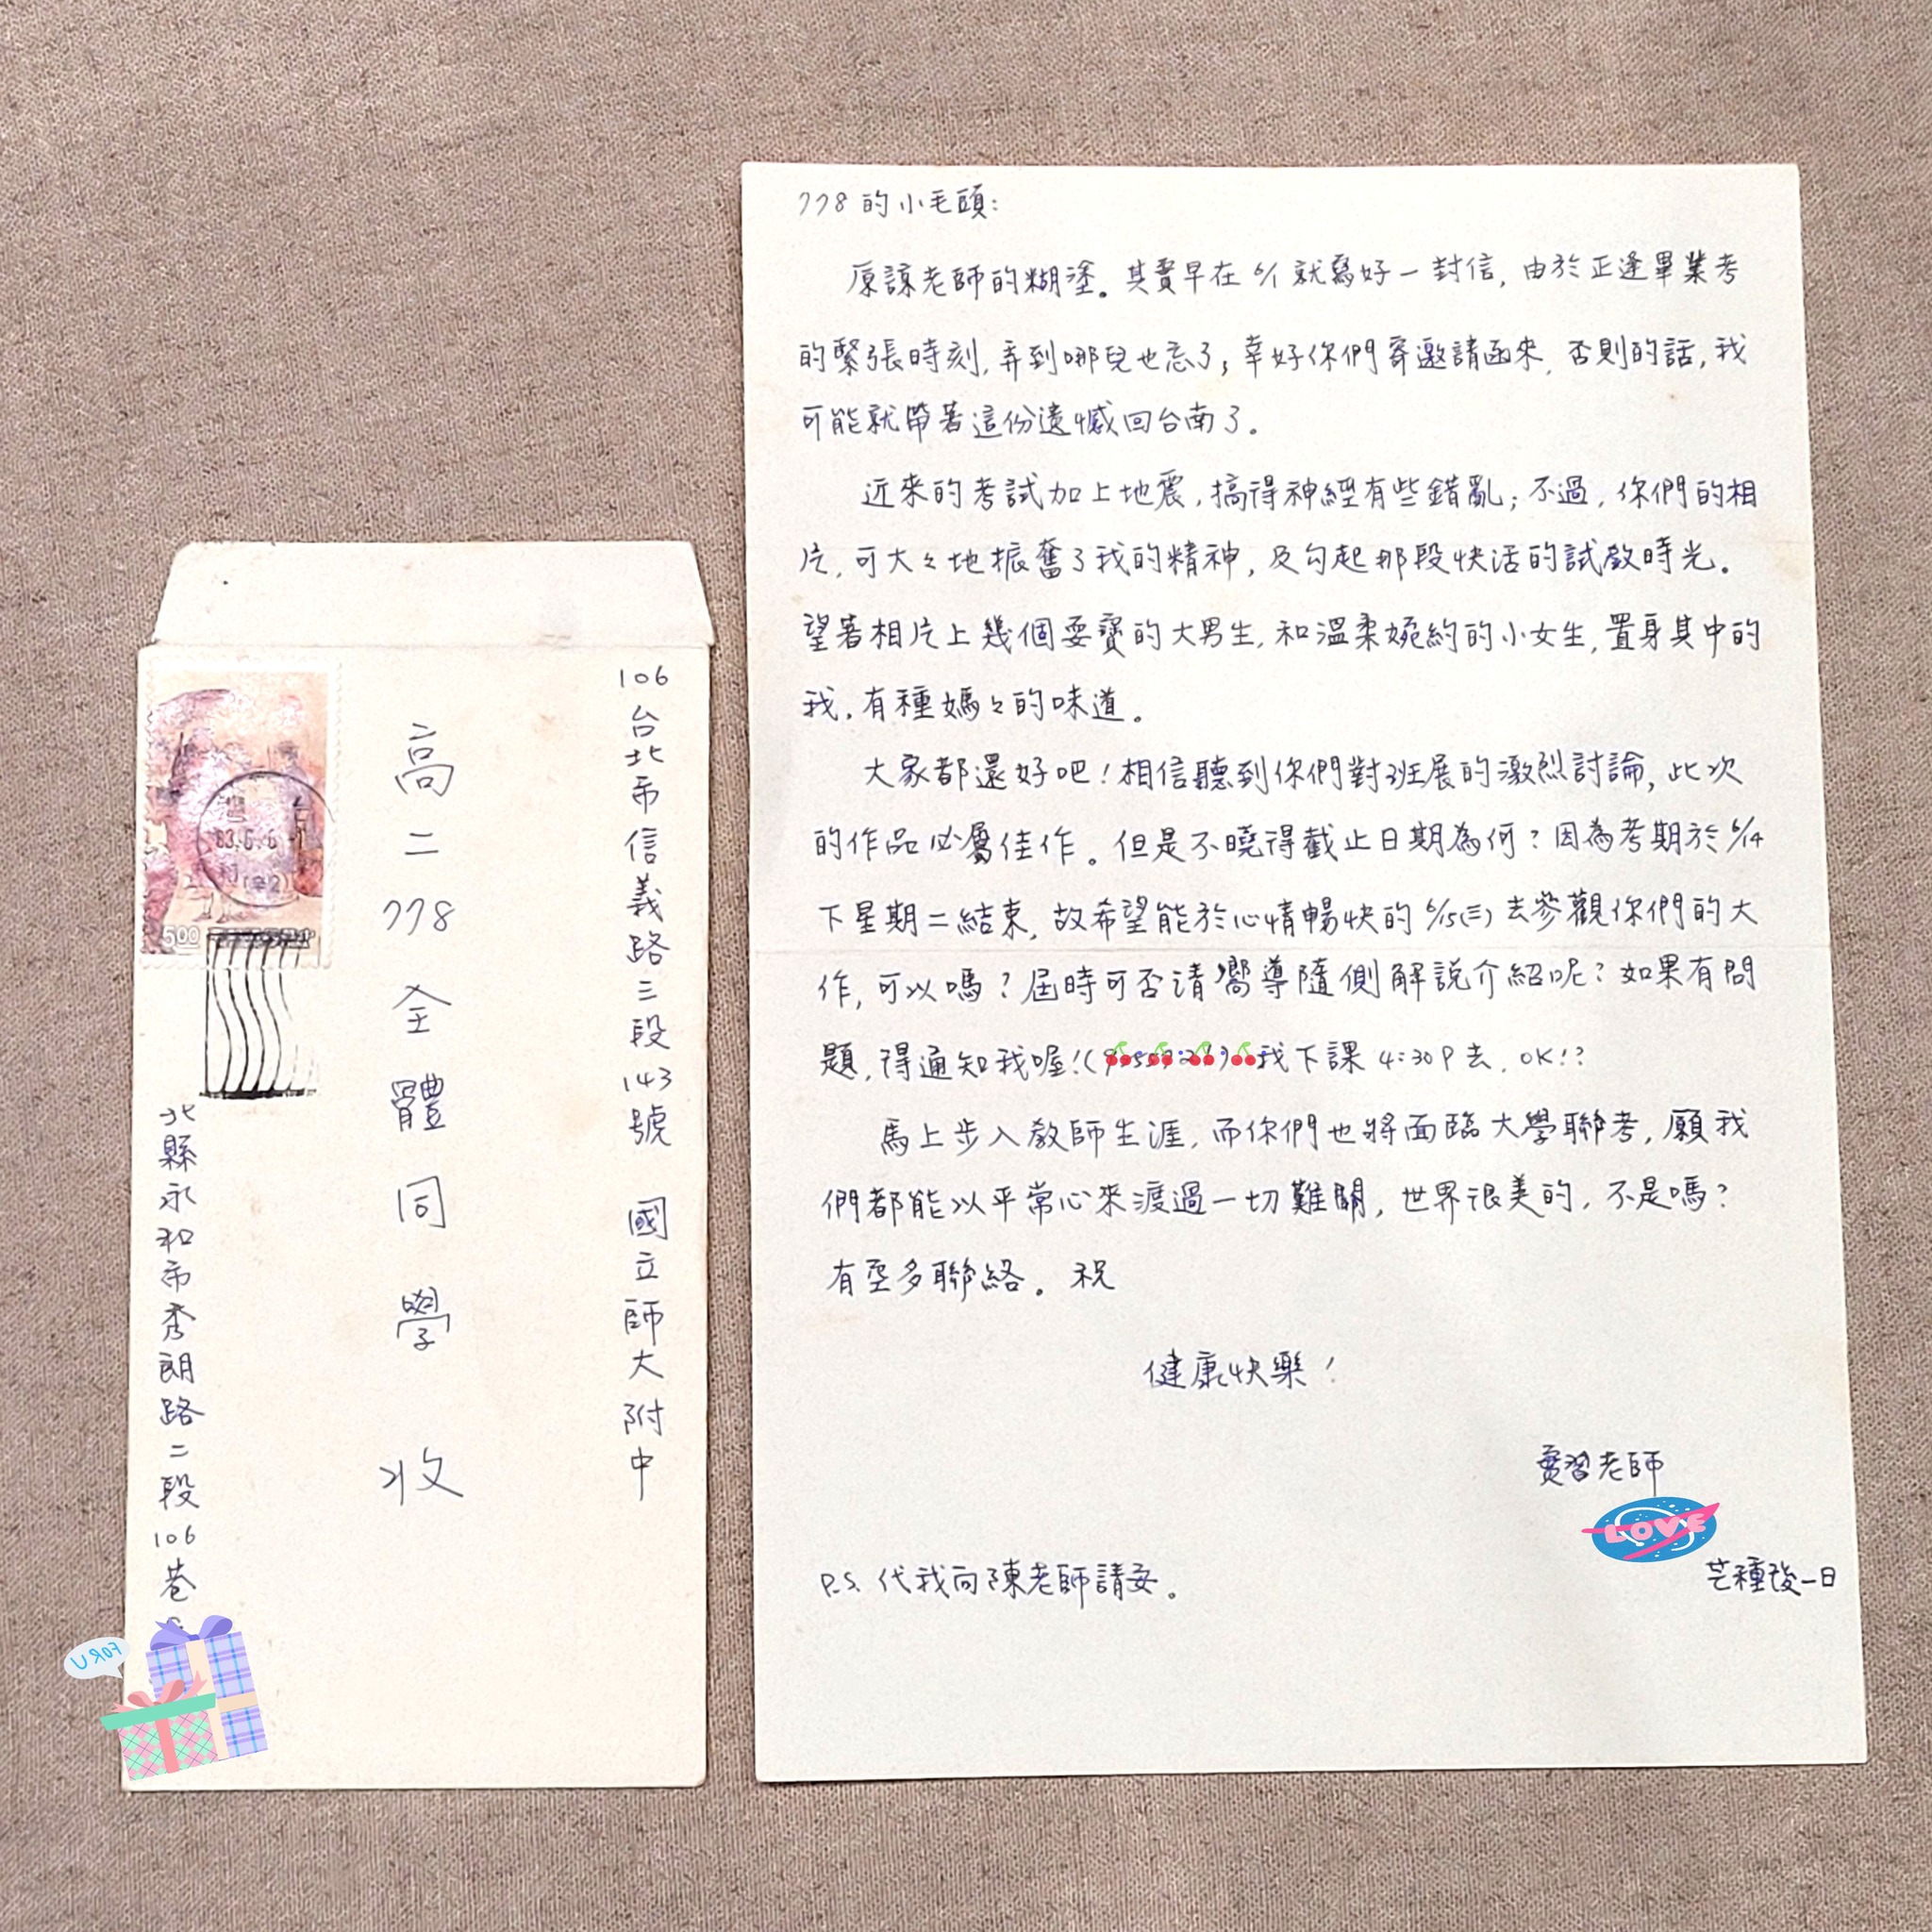 106 台北市信義路三段143號 國立師大附中
高二 778 全體同學 收
北縣永和市秀朗路二段106巷
5.00
83.6.6
FOR U
778 的小毛頭:
原諒老師的糊塗。其實早在 6/1 就寫好一封信, 由於正逢畢業考
的緊張時刻, 弄到哪兒也忘了; 幸好你們寄邀請函來, 否則的話, 我
可能就帶著這份遺憾回台南了。
近來的考試加上地震, 搞得神經有些錯亂; 不過, 你們的相
片, 可大々地振奮了我的精神, 及勾起那段快活的試教時光。
望著相片上幾個耍寶的大男生, 和溫柔婉約的小女生, 置身其中的
我, 有種媽々的味道。
大家都還好吧! 相信聽到你們對班展的激烈討論, 此次
的作品必屬佳作。但是不曉得截止日期為何? 因為考期於 6/14
下星期二結束, 故希望能於心情暢快的 6/15(三) 去參觀你們的大
作, 可以嗎? 屆時可否請嚮導隨側解說介紹呢? 如果有問
題, 得通知我喔! ( ) 我下課 4:30 P 去, OK!?
馬上步入教師生涯, 而你們也將面臨大學聯考, 願我
們都能以平常心來渡過一切難關, 世界很美的, 不是嗎?
有空多聯絡。 祝
健康快樂!
實習老師
LOVE
P.S. 代我向陳老師請安。
芒種後一日